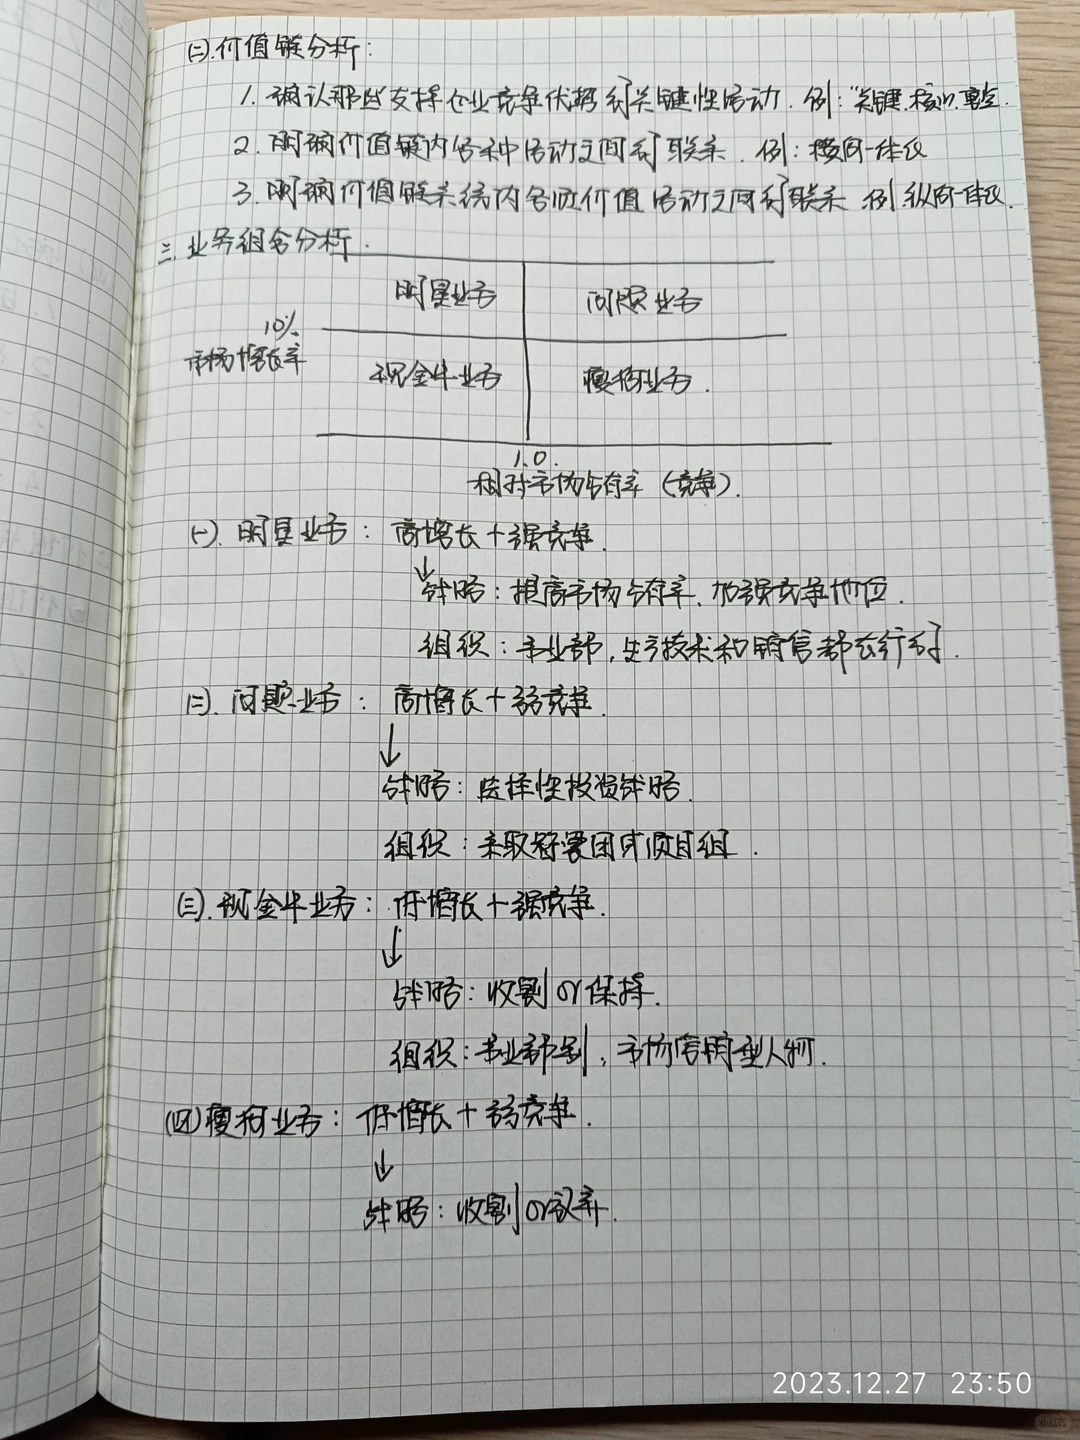 (二).价值链分析:
1. 确认那些支持企业竞争优势的关键性活动. 例: "关键. 核心. 重点.
2. 明确价值链内各种活动之间的联系. 例: 横向一体化
3. 明确价值链系统内各项价值活动之间的联系 例. 纵向一体化.
三. 业务组合分析.
明星业务 问题业务
10%
市场增长率
现金牛业务 瘦狗业务.
1.0.
相对市场占有率 (竞争).
(一). 明星业务: 高增长+强竞争.
战略: 提高市场占有率、加强竞争地位.
组织: 事业部, 生产技术和销售都在行的.
(二). 问题业务: 高增长+弱竞争.
战略: 选择性投资战略.
组织: 采取智囊团或项目组.
(三). 现金牛业务: 低增长+强竞争.
战略: 收割 or 保持.
组织: 事业部制, 市场营销型人物.
(四) 瘦狗业务: 低增长+弱竞争.
战略: 收割 or 放弃.
2023.12.27 23:50
小红书